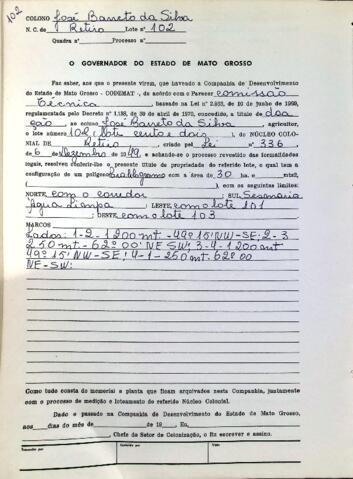 102
COLONO José Barreto da Silva
N. C. de Retiro Lote nº 102
Quadra nº Processo nº
O GOVERNADOR DO ESTADO DE MATO GROSSO
Faz saber, aos que o presente virem, que havendo a Companhia de Desenvolvimento
do Estado de Mato Grosso - CODEMAT -, de acôrdo com o Parecer comissão
Técnica, baseado na Lei nº 2.933, de 10 de junho de 1969,
regulamentada pelo Decreto nº 1.138, de 39 de abril de 1970, concedido, a título de doa
ção ao colono José Barreto da Silva, agricultor,
o lote número 102 (Lote cento e dois) do NÚCLEO COLO-
NIAL DE Retiro, criado pela Lei nº 336,
de 6 de Dezembro de 1949, e achando-se o processo revestido das formalidades
legais, resolveu conferir-lhe o presente título de propriedade do referido lote, o qual tem a
configuração de um polígono com a área de 30 ha.
mts2., com os seguintes limites:
NORTE, com o corredor; SUL, Sesmaria
Água Limpa; LESTE, com o lote 101
; OESTE, com o lote 103
MARCOS
Lados: 1-2-1200 mt. - 49º 15' NW-SE; 2-3
250 mt - 62º 00' NE SW; 3-4-1200 mt
49º 15' NW-SE; 4-1-250 mt. 62º 00
NE-SW;
Como tudo consta do memorial e planta que ficam arquivados nesta Companhia, juntamente
com o processo de medição e loteamento do referido Núcleo Colonial.
Dado e passado na Companhia de Desenvolvimento do Estado de Mato Grosso,
aos dias do mês de de 19 Eu,
, Chefe do Setor de Colonização, o fiz escrever e assino.
Visto